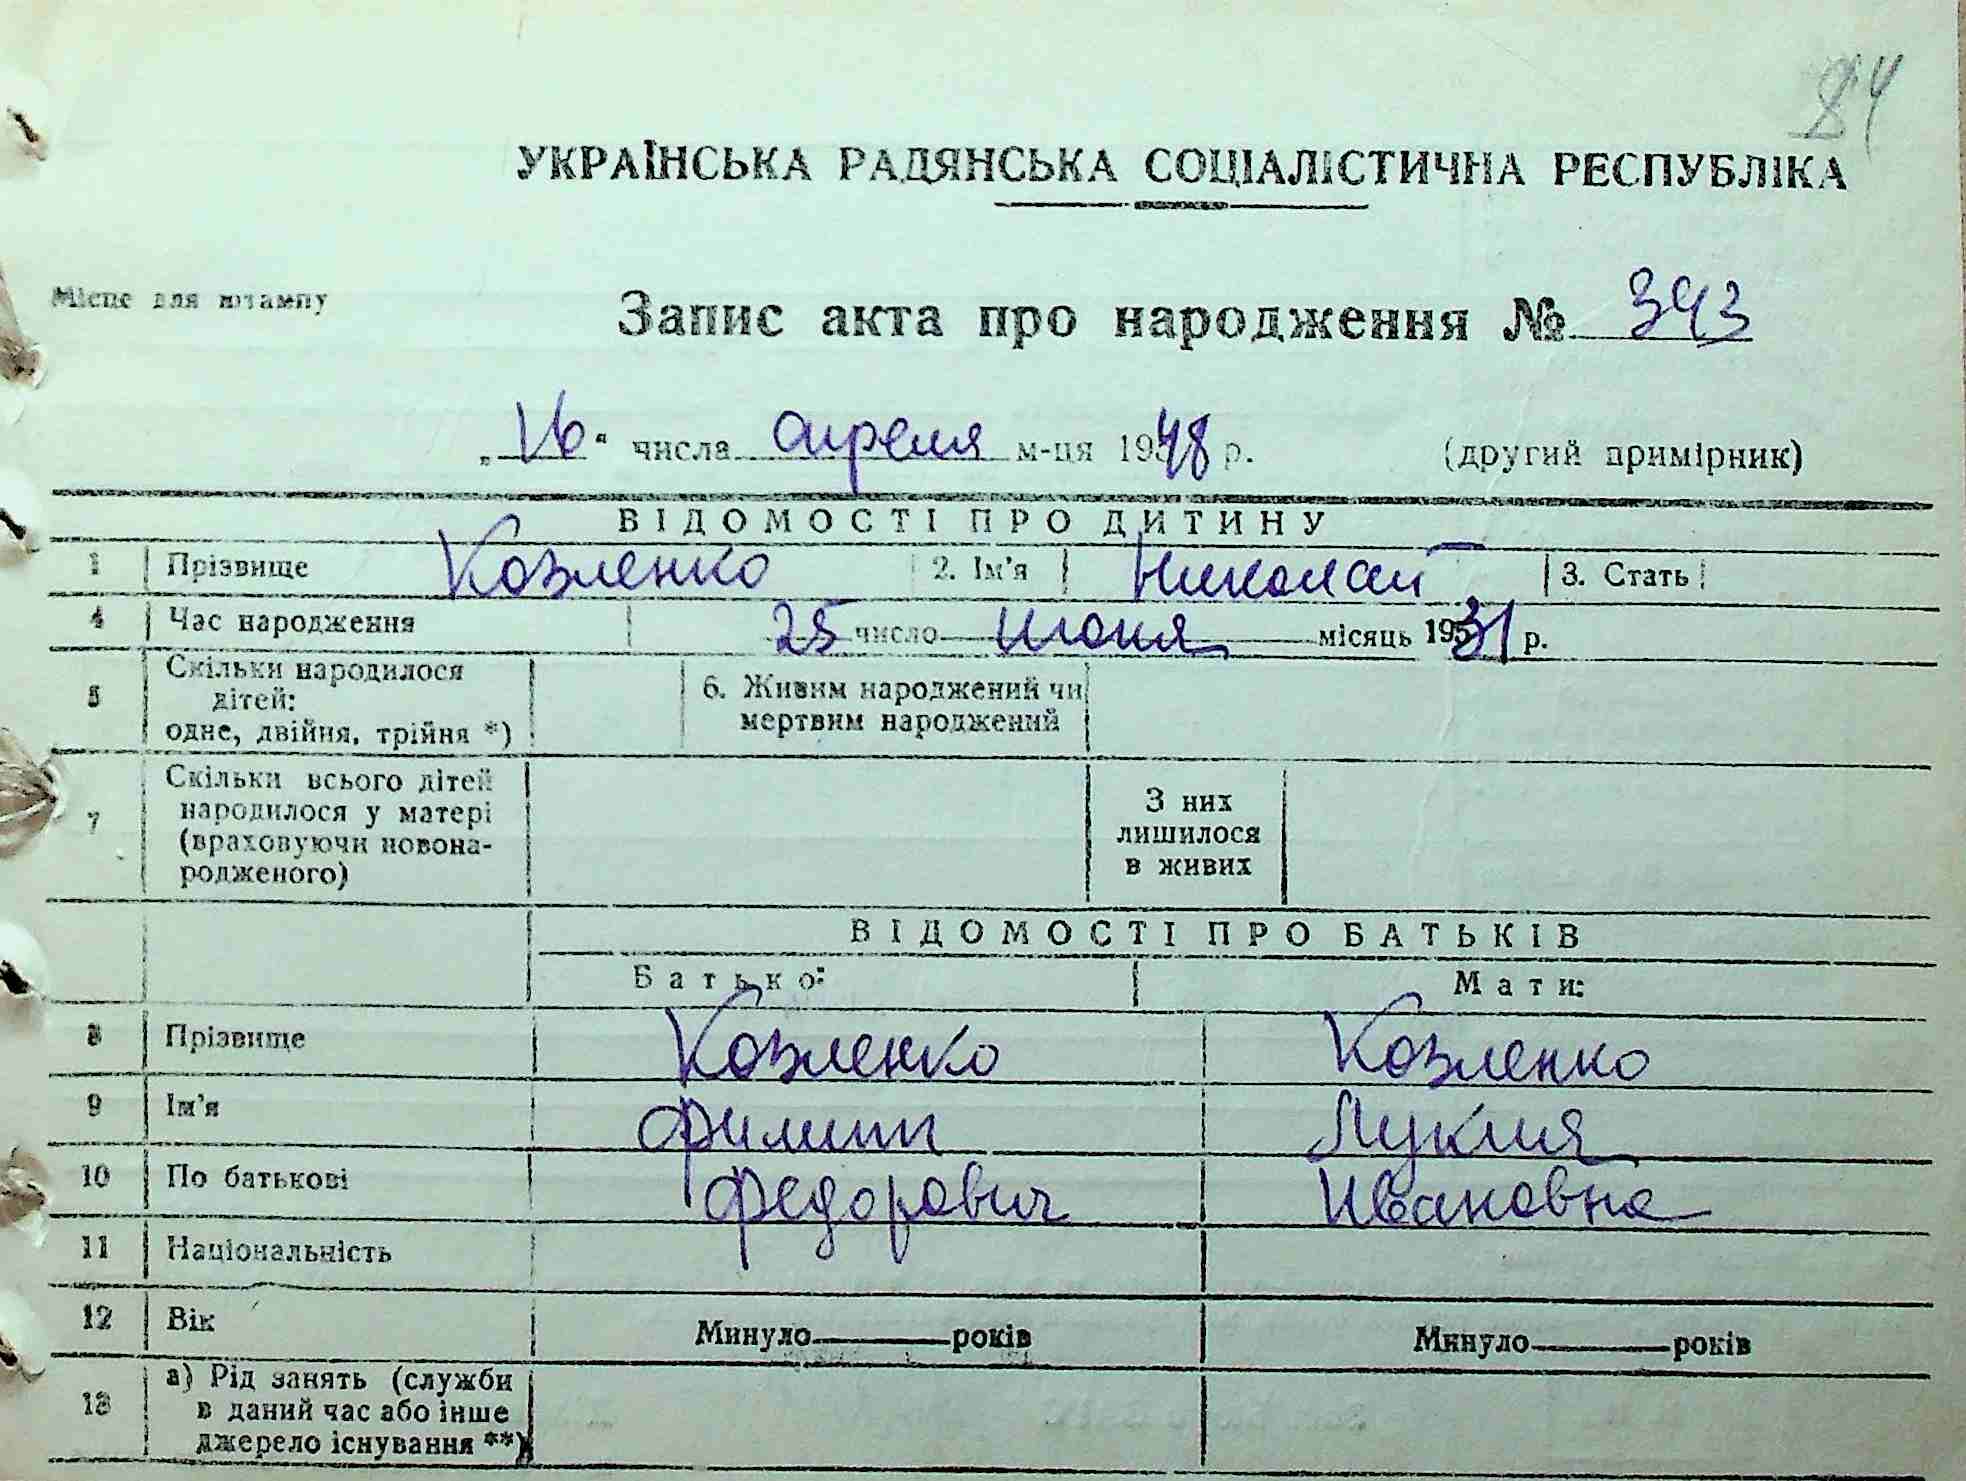 84
УКРАЇНСЬКА РАДЯНСЬКА СОЦІАЛІСТИЧНА РЕСПУБЛІКА
Місце для штампу
Запис акта про народження № 393
„16“ числа апреля м-ця 1948 р. (другий примірник)
ВІДОМОСТІ ПРО ДИТИНУ
1 Прізвище Козленко 2. Ім'я Николай 3. Стать
4 Час народження 25 число июня місяць 1931 р.
5 Скільки народилося дітей: одне, двійня, трійня *) 6. Живим народжений чи мертвим народжений
7 Скільки всього дітей народилося у матері (враховуючи новона-родженого) З них лишилося в живих
ВІДОМОСТІ ПРО БАТЬКІВ
Батько: Мати:
8 Прізвище Козленко Козленко
9 Ім'я Филипп Лукия
10 По батькові Федорович Ивановна
11 Національність
12 Вік Минуло років Минуло років
13 а) Рід занять (служби в даний час або інше джерело існування **)